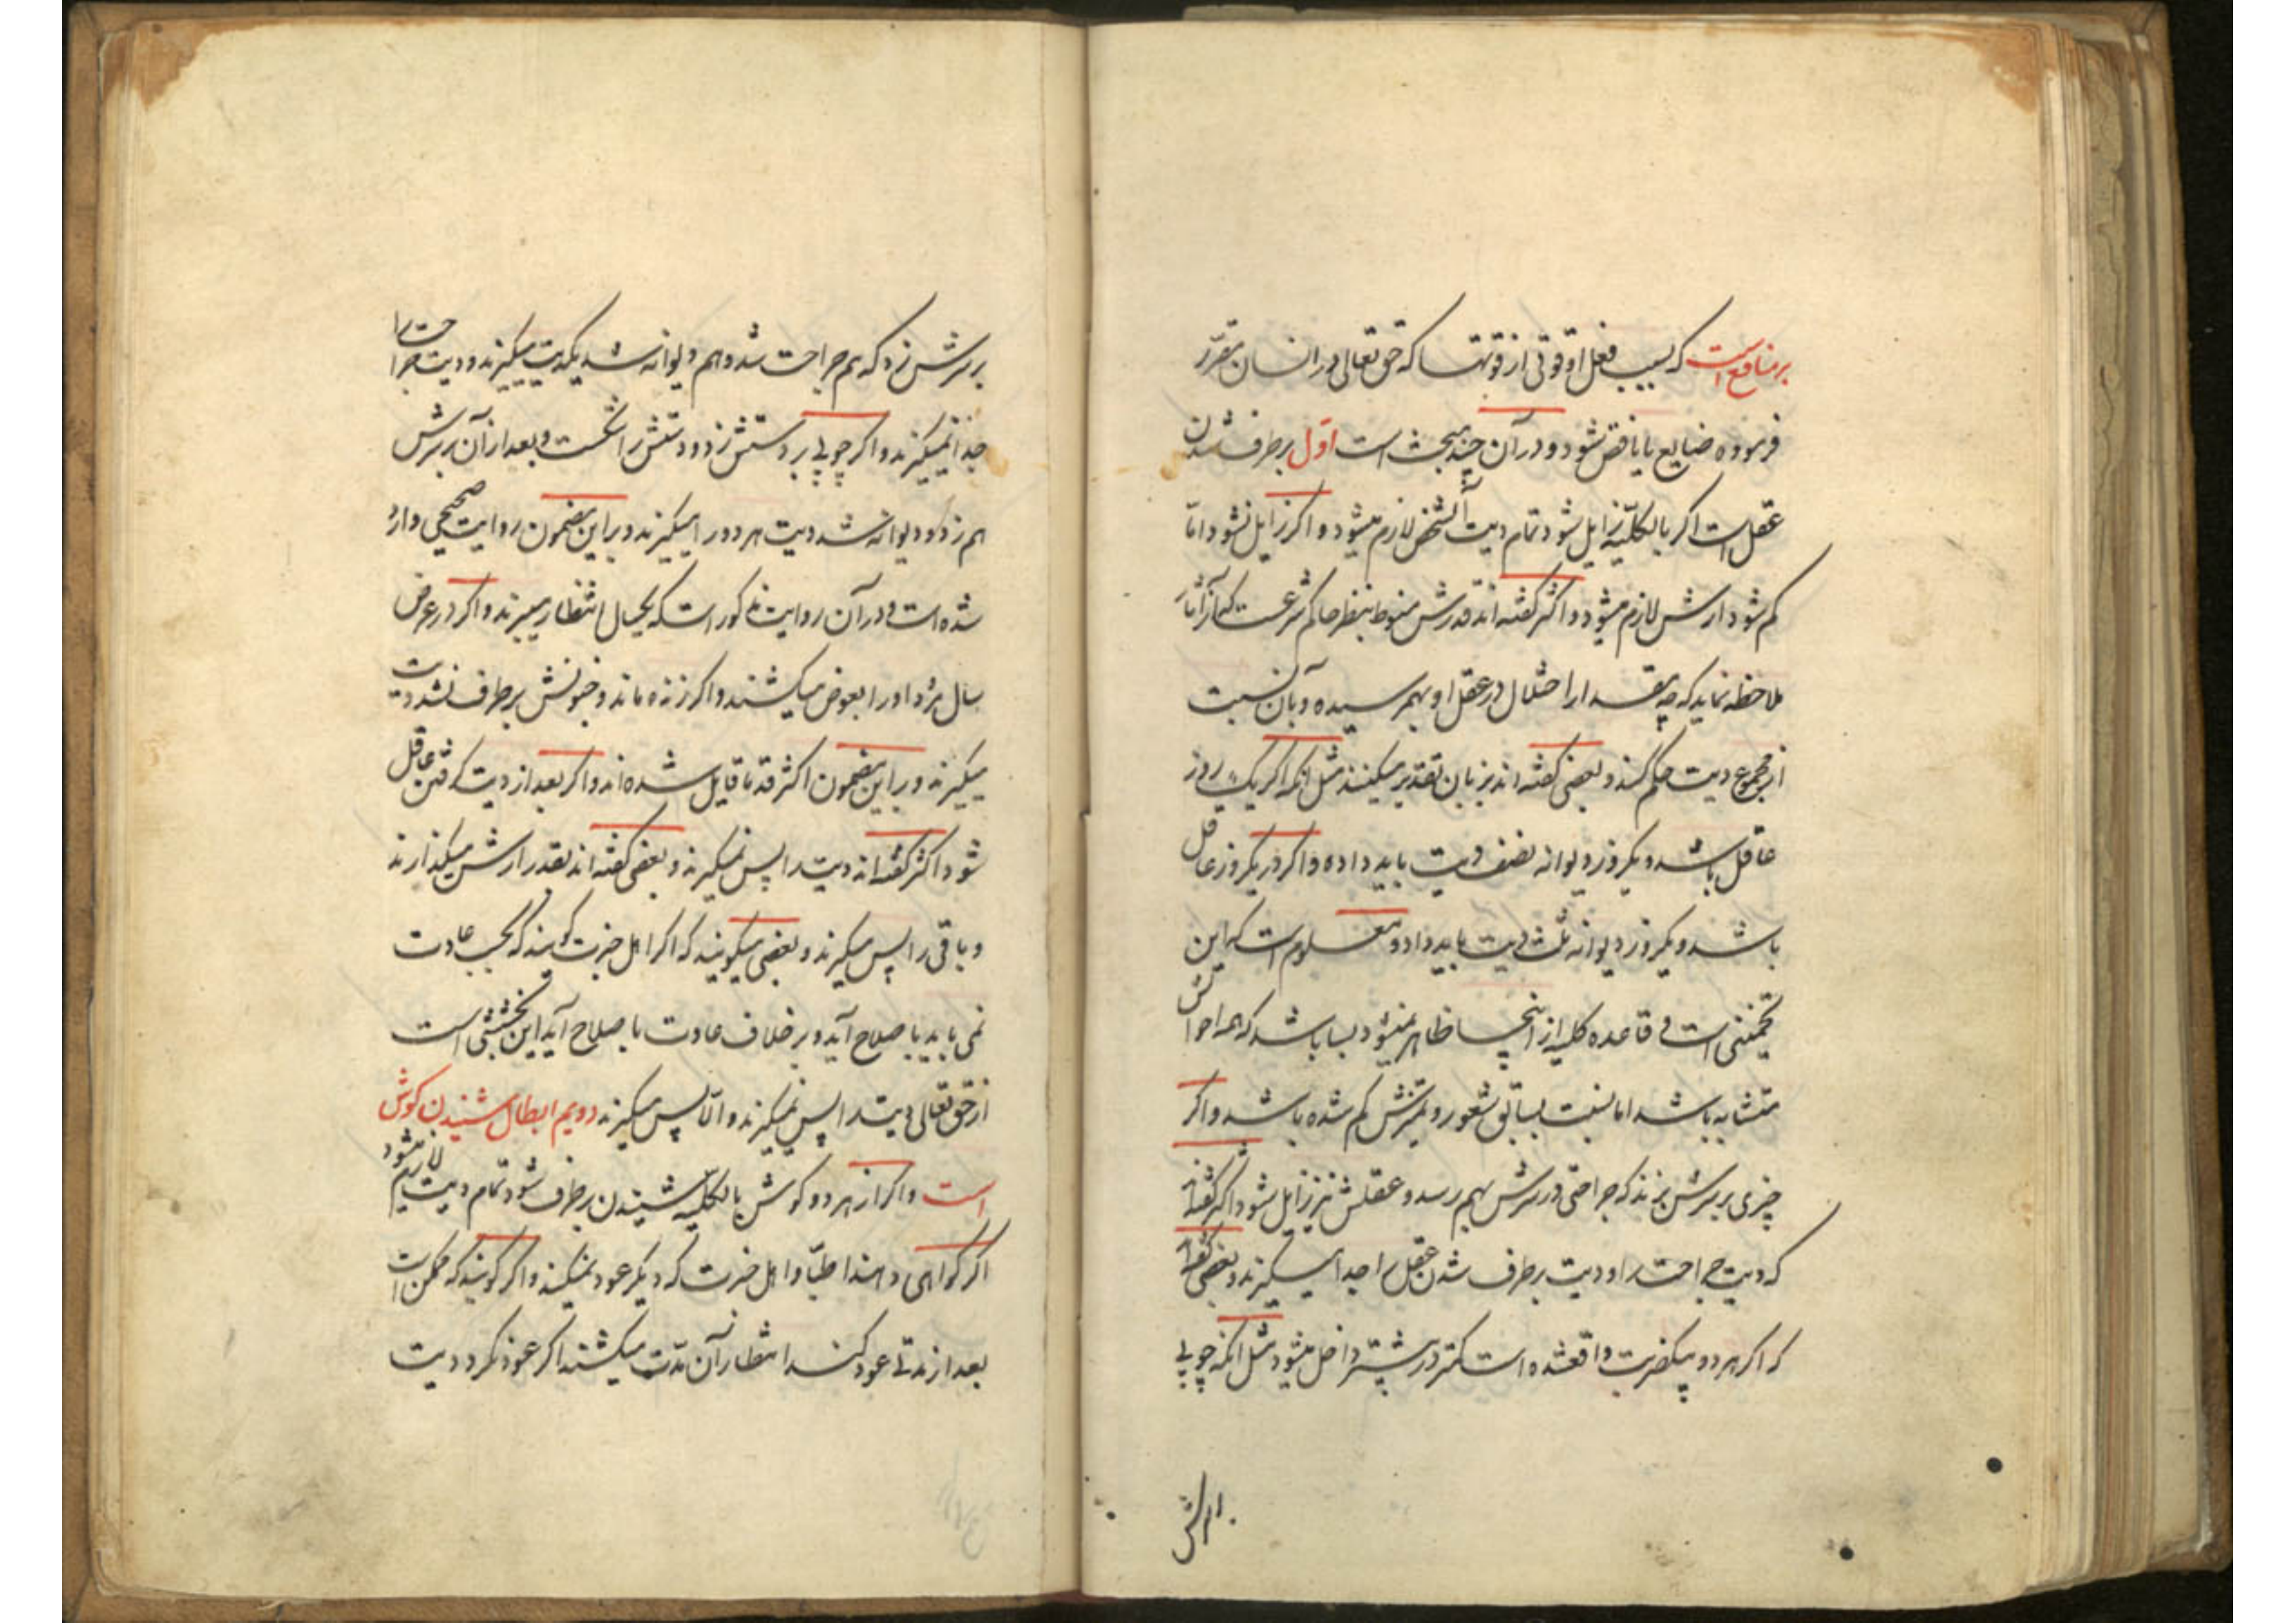 بر منافع است که بسبب فعل او قوتی از قوتها که حق تعالی در انسان مقرر
فرموده ضایع یا ناقص شود و در آن چند مبحث است اول برطرف شدن
عقل است اگر بالکلیه زایل شود تمام دیت آن شخص لازم میشود و اگر زایل نشود اما
کم شود ارش لازم میشود و اکثر گفته اند قدرش منوط بنظر حاکم شرعست که از آثار
ملاحظه نماید که چه مقدار اختلال در عقل او بهم رسیده و بآن نسبت
از مجموع دیت حکم کند و بعضی گفته اند بزمان تقدیر میکنند مثل آنکه اگر یک روز
عاقل باشد و یکروز دیوانه نصف دیت باید داده و اگر دو روز عاقل
باشد و یکروز دیوانه ثلث دیت باید داد و معلوم است که این
تخمینی است و قاعده کلیه از اینجا ظاهر نمیشود بسا باشد که همه احوالش
متشابه باشد اما نسبت بسابق شعور و تمیزش کم شده باشد و اگر
چیزی بر سرش بزند که جراحتی در سرش بهم رسد و عقلش نیز زایل شود اکثر گفته اند
که دیت جراحت را و دیت برطرف شدن عقل را جدا میگیرند و بعضی گفته اند
که اگر هر دو بیکضربت واقع شده است کمتر در بیشتر داخل میشود مثل آنکه چوبی
بر سرش
بر سرش زد که هم جراحت شد و هم دیوانه شد یکدیت میگیرند و دیت جراحت را
جدا نمیگیرند و اگر چوبی بر دستش زد و دستش را شکست و بعد از آن بر سرش
هم زد و دیوانه شد دیت هر دو را میگیرند و براین مضمون روایت صحیحی وارد
شده است و در آن روایت مذکور است که یکسال انتظار میبرند و اگر در عرض
سال مرد او را بعوض میکشند و اگر زنده ماند و جنونش برطرف نشد دیت
میگیرند و براین مضمون اکثر قدما قایل شده اند و اگر بعد از دیت گرفتن عاقل
شود اکثر گفته اند دیت را پس نمیگیرند و بعضی گفته اند بقدر ارش میگذارند
و باقی را پس میگیرند و بعضی میگویند که اگر اهل خبرت گویند که بحسب عادت
نمی باید باصلاح آید و بر خلاف عادت باصلاح آید این بخششی است
از حق تعالی دیت را پس نمیگیرند و الا پس میگیرند دویم ابطال شنیدن گوش
است و اگر از هر دو گوش بالکلیه شنیدن برطرف شود تمام دیت لازم میشود
اگر گواهی دهند اطبّا و اهل خبرت که دیگر عود نمیکند و اگر گویند که ممکن است
بعد از مدتی عود کند انتظار آن مدّت میکشند اگر عود نکرد دیت